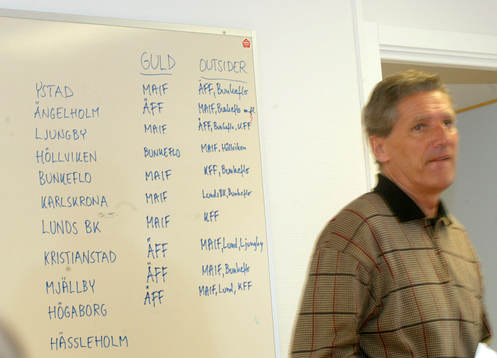 GULD OUTSIDER
YSTAD MAIF ÄFF, Bunkeflo
ÄNGELHOLM ÄFF MAIF, Bunkeflo m.fl.
LJUNGBY MAIF ÄFF, Bunkeflo, KFF
HÖLLVIKEN BUNKEFLO MAIF, Höllviken
BUNKEFLO MAIF KFF, Bunkeflo
KARLSKRONA MAIF Lunds BK, Bunkeflo
LUNDS BK MAIF KFF
KRISTIANSTAD ÄFF MAIF, Lund, Ljungby
MJÄLLBY ÄFF MAIF, Bunkeflo
HÖGABORG ÄFF MAIF, Lund, KFF
HÄSSLEHOLM